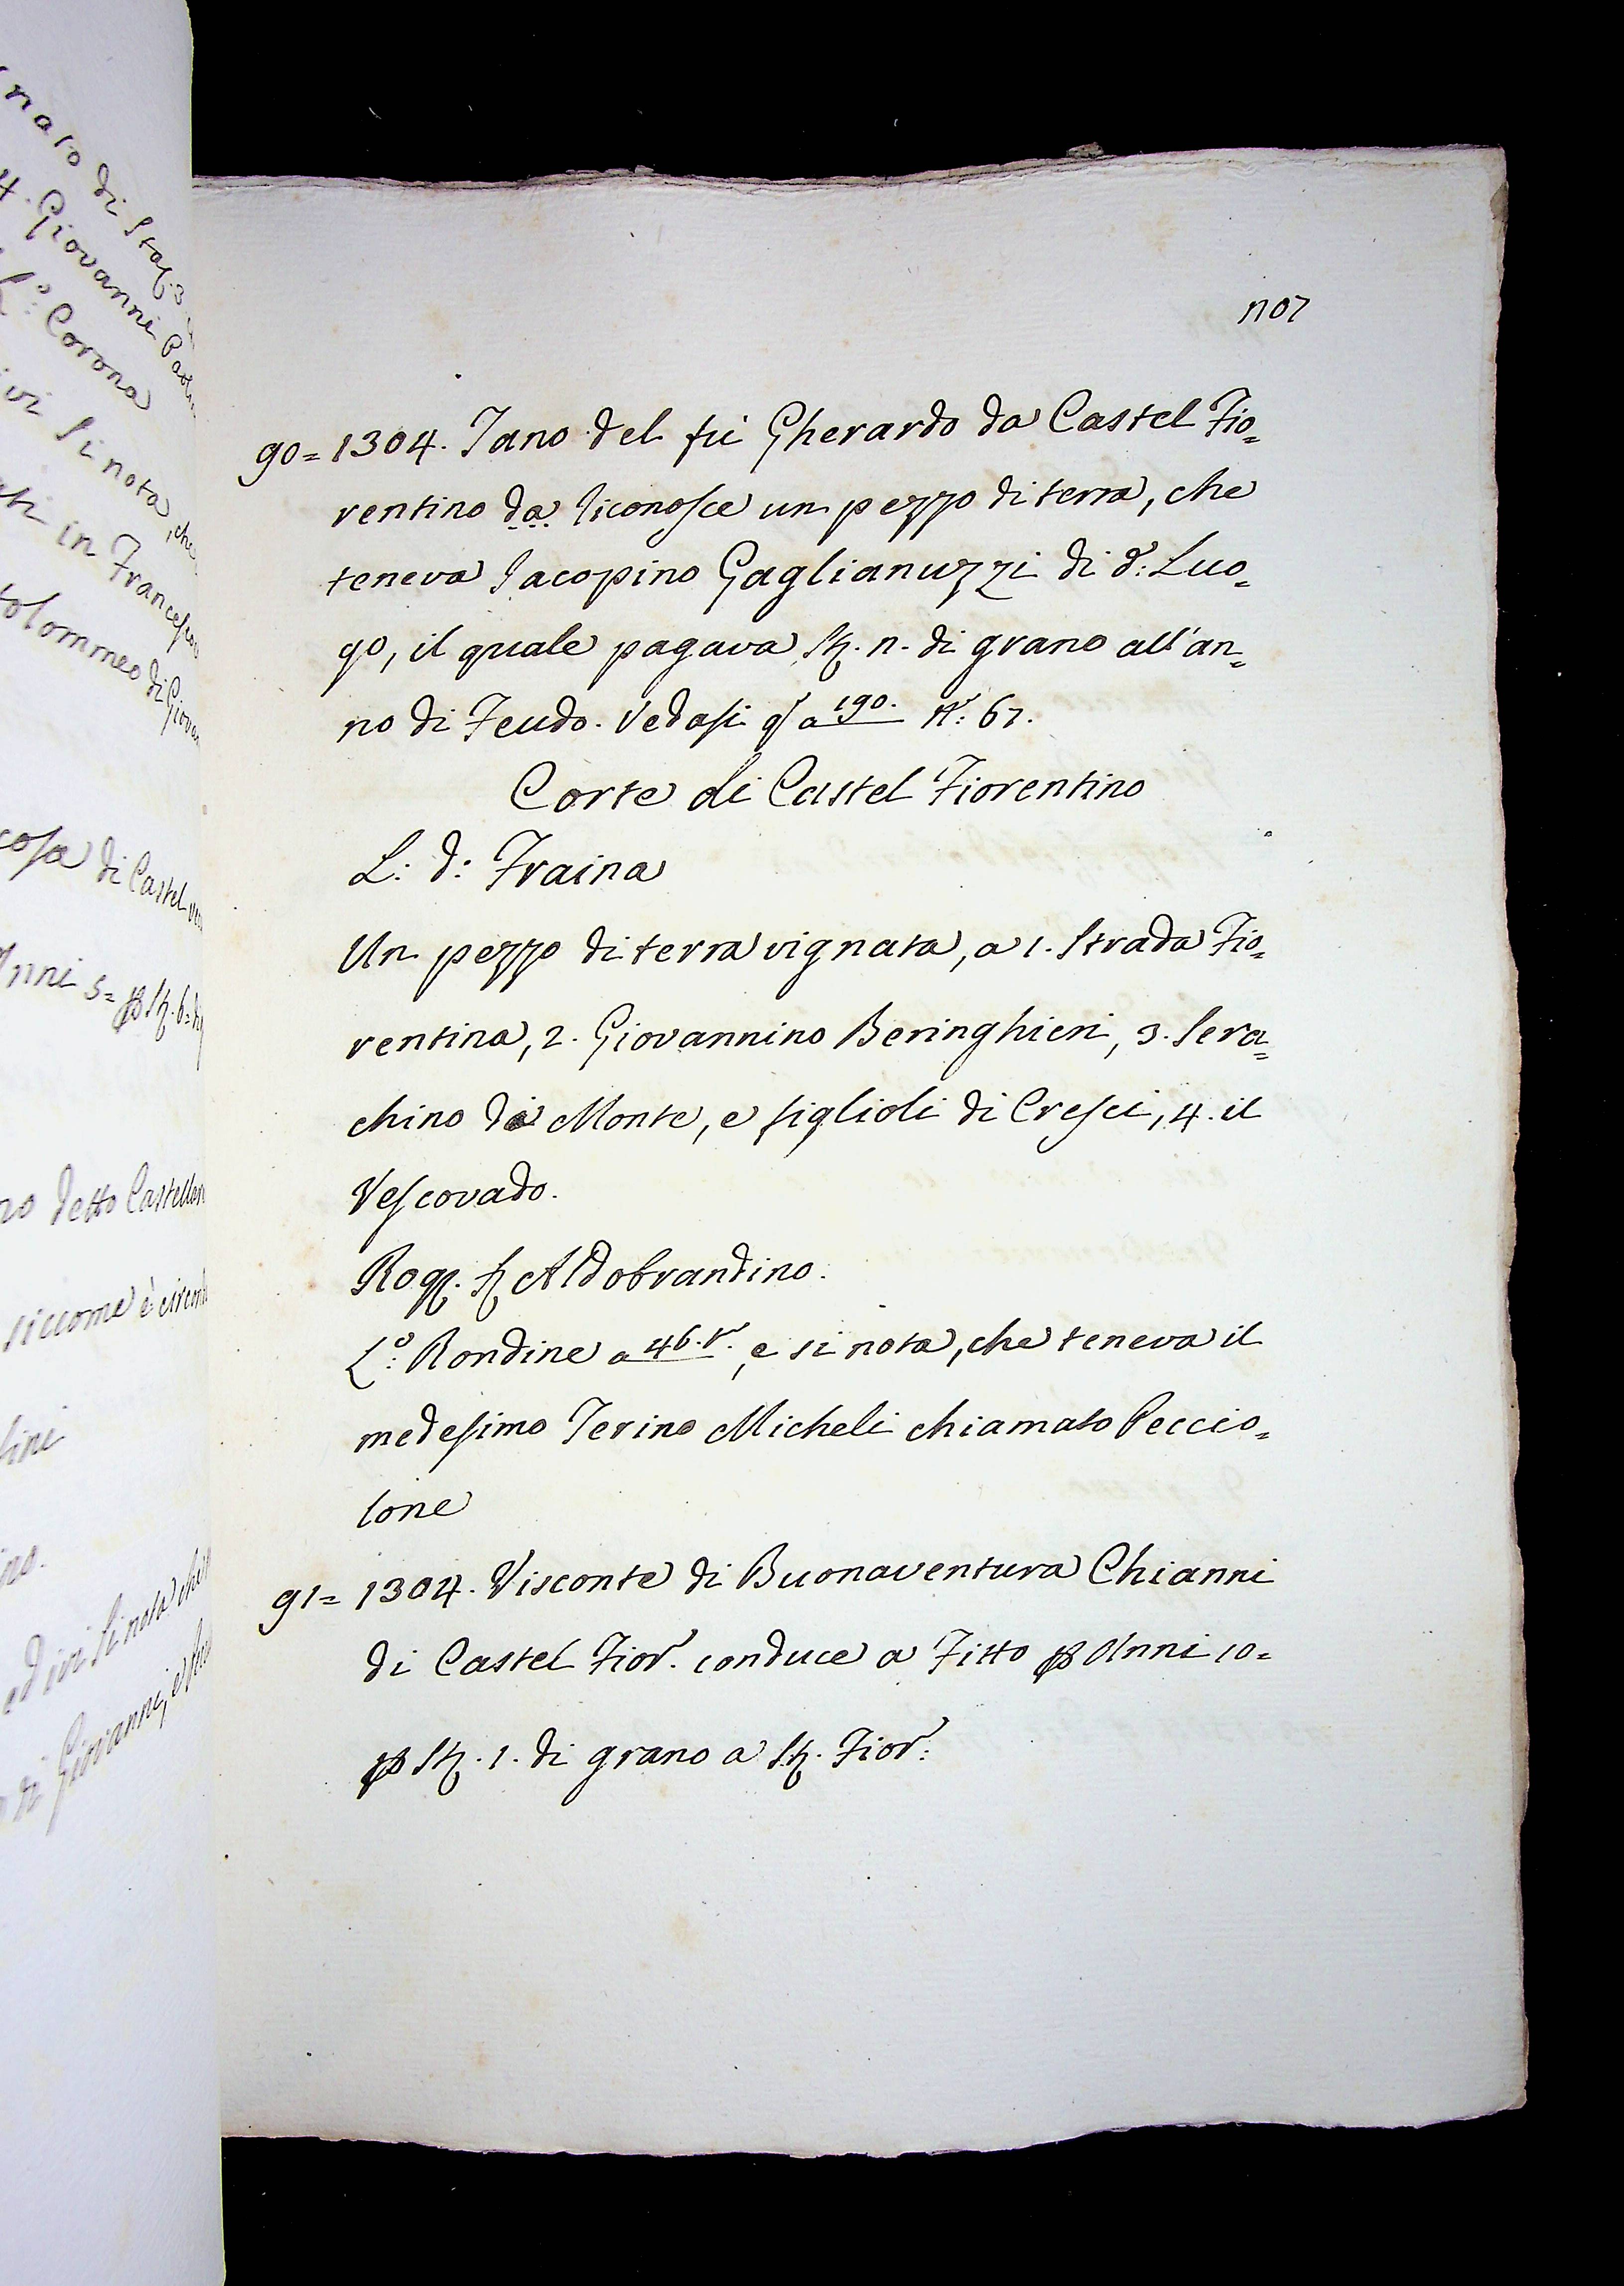 1107
90= 1304. Iano del fù Gherardo da Castel Fio=
rentino da riconosce un pezzo di terra, che
teneva Jacopino Gaglianuzzi di d.: Luo=
go, il quale pagava St. 11. di grano all'an=
no di Feudo. Vedasi q a 190. N.: 67.
Corte di Castel Fiorentino
L: d: Fraina
Un pezzo di terra vignata, a 1. Strada Fio=
rentina, 2. Giovannino Beringhieri, 3. Sera=
chino da Monte, e figlioli di Cresci, 4. il
Vescovado.
Rog. S. Aldobrandino.
L.o Rondine a 46. r. e si nota, che teneva il
medesimo Terino Micheli chiamato Peccio=
lone
91= 1304. Visconte di Buonaventura Chianni
di Castel Fior. conduce a Fitto p Anni 10=
p St. 1. di grano a St. Fior:
nato di Staf. 3
4. Giovanni
L.o Corona
ivi si nota, che
in Francesco
tolommeo di Giovan
cosa di Castel
nni 5= p St. 6=
no detto Castellare
siccome è
lini
no.
ed ivi si nota che
di Giovanni, e